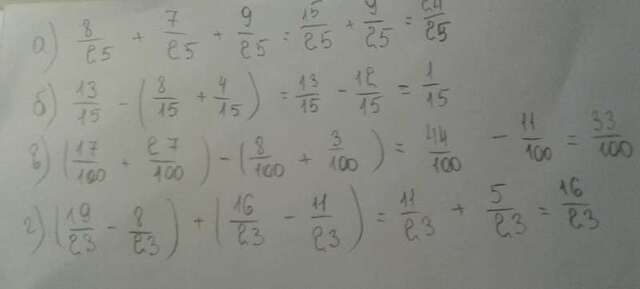 а) 8/25 + 7/25 + 9/25 = 15/25 + 9/25 = 24/25
б) 13/15 - (8/15 + 4/15) = 13/15 - 12/15 = 1/15
в) (17/100 + 27/100) - (8/100 + 3/100) = 44/100 - 11/100 = 33/100
г) (19/23 - 8/23) + (16/23 - 11/23) = 11/23 + 5/23 = 16/23